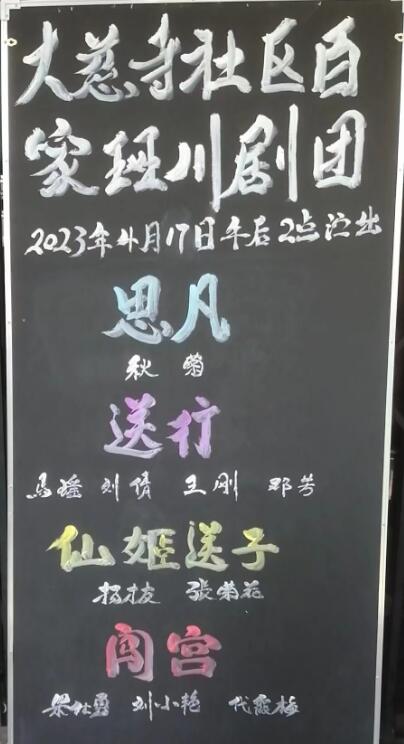 大慈寺社区百
家班川剧团
2023年4月17日午后2点演出
思凡
秋菊
送行
马瑶 刘倩 王刚 邓芳
仙姬送子
杨枝 張菊花
闯宫
刘小艳 代霞梅